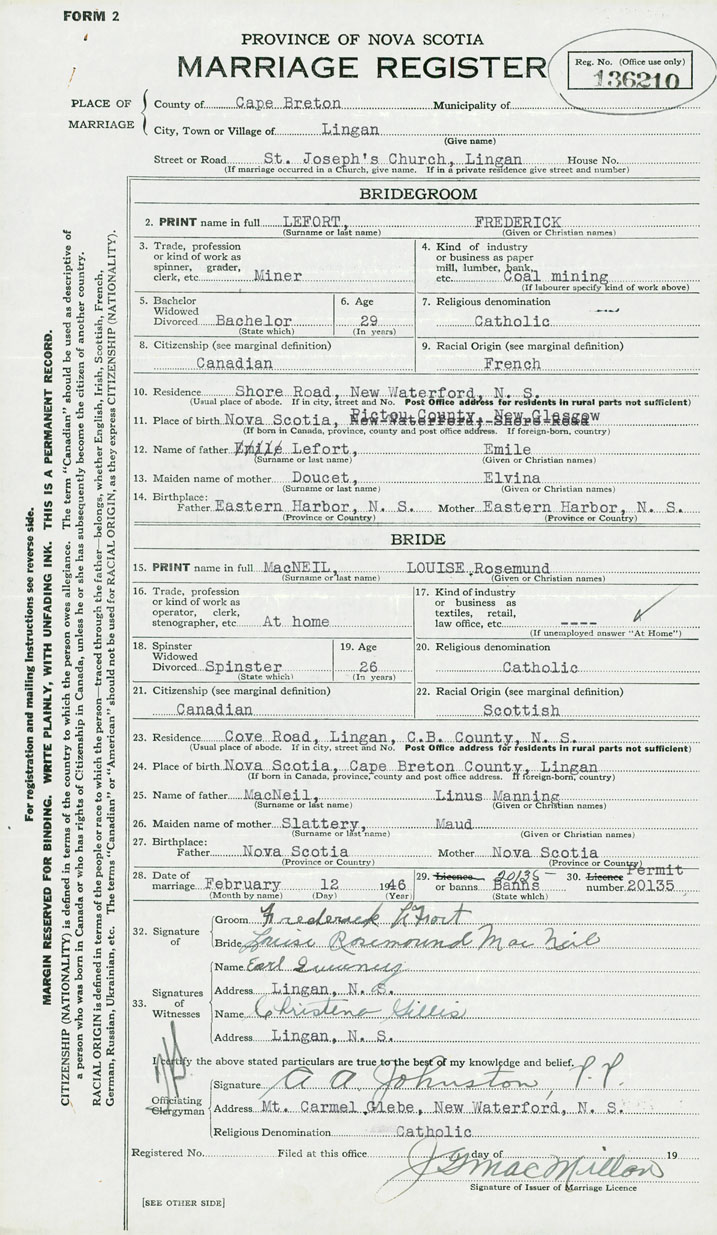 FORM 2
PROVINCE OF NOVA SCOTIA
MARRIAGE REGISTER
Reg. No. (Office use only)
136210
PLACE OF MARRIAGE
County of Cape Breton Municipality of
City, Town or Village of Lingan
(Give name)
Street or Road St. Joseph's Church, Lingan House No.
(If marriage occurred in a Church, give name. If in a private residence give street and number)
BRIDEGROOM
2. PRINT name in full LEFORT, FREDERICK
(Surname or last name) (Given or Christian names)
3. Trade, profession 4. Kind of industry
or kind of work as or business as paper
spinner, grader, mill, lumber, bank,
clerk, etc. Miner etc. Coal mining
(If labourer specify kind of work above)
5. Bachelor 6. Age 7. Religious denomination
Widowed
Divorced Bachelor 29 Catholic
(State which) (In years)
8. Citizenship (see marginal definition) 9. Racial Origin (see marginal definition)
Canadian French
10. Residence Shore Road, New Waterford, N. S.
(Usual place of abode. If in city, street and No. Post Office address for residents in rural parts not sufficient)
Pictou County, New Glasgow
11. Place of birth Nova Scotia, New Waterford, Shore Road
(If born in Canada, province, county and post office address. If foreign-born, country)
12. Name of father Emile Lefort, Emile
(Surname or last name) (Given or Christian names)
13. Maiden name of mother Doucet, Elvina
(Surname or last name) (Given or Christian names)
14. Birthplace:
Father Eastern Harbor, N. S. Mother Eastern Harbor, N. S.
(Province or Country) (Province or Country)
BRIDE
15. PRINT name in full MacNEIL, LOUISE Rosemund
(Surname or last name) (Given or Christian names)
16. Trade, profession 17. Kind of industry
or kind of work as or business as
operator, clerk, textiles, retail,
stenographer, etc At home law office, etc. ----
(If unemployed answer "At Home")
18. Spinster 19. Age 20. Religious denomination
Widowed
Divorced Spinster 26 Catholic
(State which) (In years)
21. Citizenship (see marginal definition) 22. Racial Origin (see marginal definition)
Canadian Scottish
23. Residence Cove Road, Lingan, C.B. County, N. S.
(Usual place of abode. If in city, street and No. Post Office address for residents in rural parts not sufficient)
24. Place of birth Nova Scotia, Cape Breton County, Lingan
(If born in Canada, province, county and post office address. If foreign-born, country)
25. Name of father MacNeil, Linus Manning
(Surname or last name) (Given or Christian names)
26. Maiden name of mother Slattery, Maud
(Surname or last name) (Given or Christian names)
27. Birthplace:
Father Nova Scotia Mother Nova Scotia
(Province or Country) (Province or Country)
28. Date of 29. Licence 20135 30. Licence Permit
marriage February 12 1946 or banns Banns number 20135
(Month by name) (Day) (Year) (State which)
32. Signature of
Groom Frederick LeFort
Bride Louise Rosemound MacNeil
33. Signatures of Witnesses
Name Earl
Address Lingan, N. S.
Name Christena Gillis
Address Lingan, N. S.
I certify the above stated particulars are true to the best of my knowledge and belief.
Officiating Clergyman
Signature A A Johnston, P.P.
Address Mt. Carmel Glebe, New Waterford, N. S.
Religious Denomination Catholic
Registered No. Filed at this office day of 19
J G MacMillan
Signature of Issuer of Marriage Licence
[SEE OTHER SIDE]
For registration and mailing instructions see reverse side.
MARGIN RESERVED FOR BINDING. WRITE PLAINLY, WITH UNFADING INK. THIS IS A PERMANENT RECORD.
CITIZENSHIP (NATIONALITY) is defined in terms of the country to which the person owes allegiance. The term "Canadian" should be used as descriptive of
a person who was born in Canada or who has rights of Citizenship in Canada, unless he or she has subsequently become the citizen of another country.
RACIAL ORIGIN is defined in terms of the people or race to which the person—traced through the father—belongs, whether English, Irish, Scottish, French,
German, Russian, Ukrainian, etc. The terms "Canadian" or "American" should not be used for RACIAL ORIGIN, as they express CITIZENSHIP (NATIONALITY).